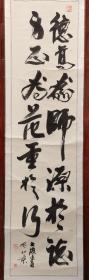 德高為師源於德
身正為范重於行